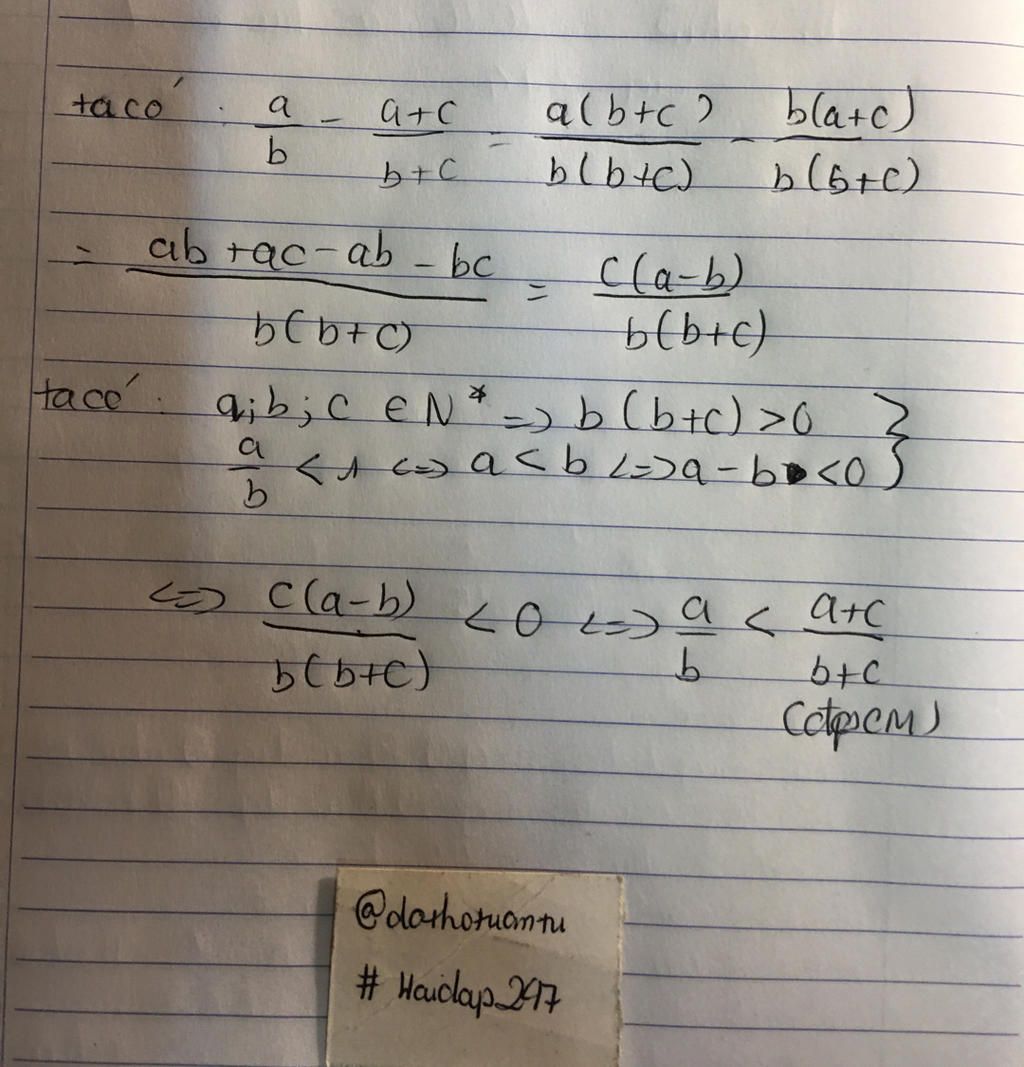 ta có : a/b - (a+c)/(b+c) = a(b+c)/b(b+c) - b(a+c)/b(b+c)
= (ab+ac-ab-bc)/b(b+c) = c(a-b)/b(b+c)
ta có : a;b;c ∈ N* => b(b+c)>0 }
a/b < 1 <=> a < b <=> a-b <0
<=> c(a-b)/b(b+c) < 0 <=> a/b < (a+c)/(b+c)
(đpCM)
# Hoidap_247